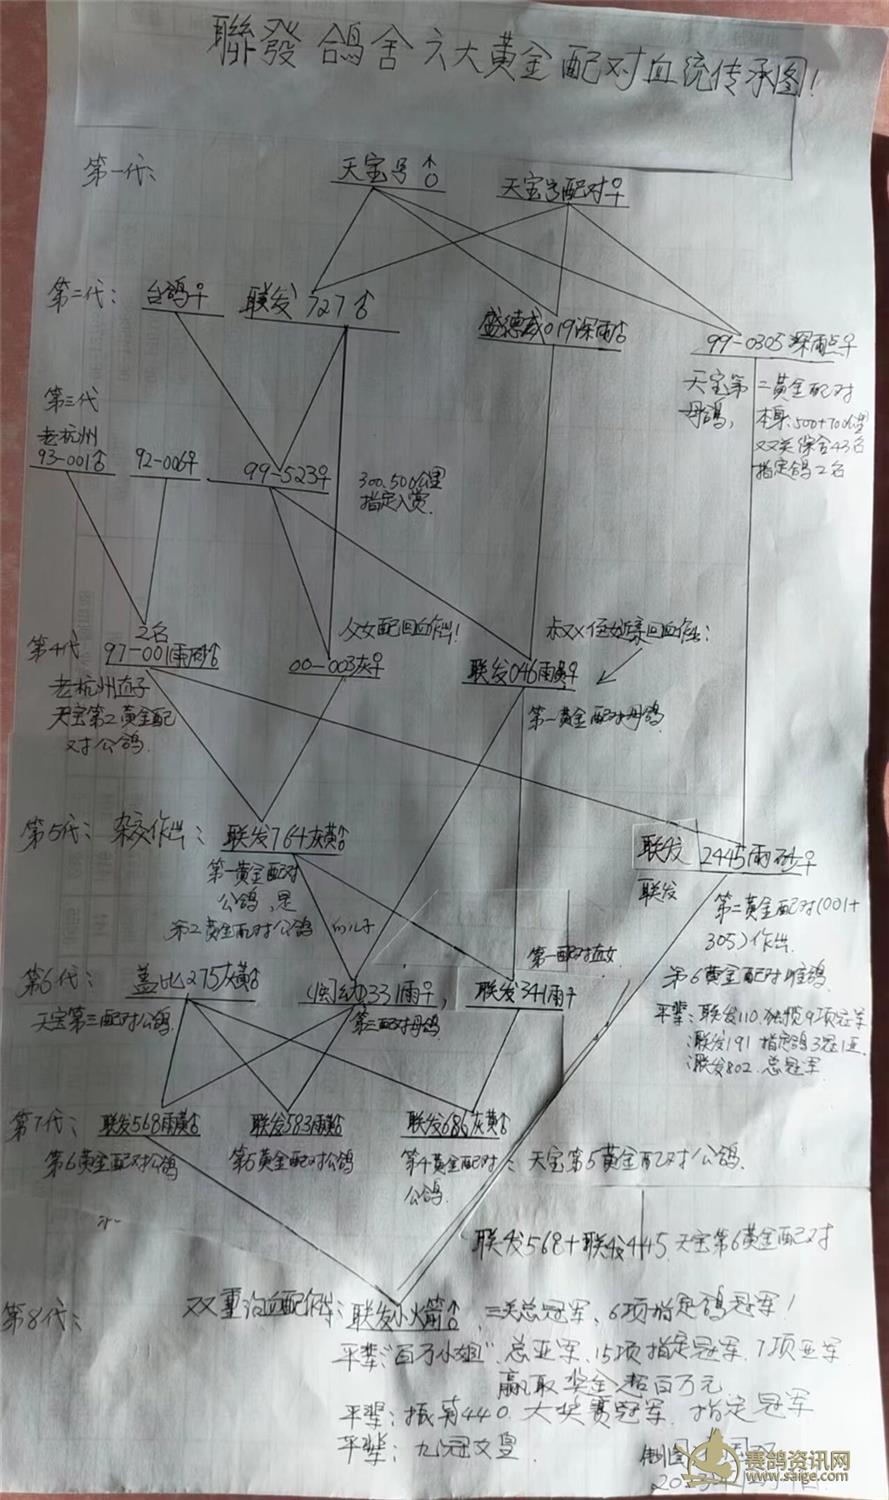 聯發鴿舍六大黄金配对血统传承图!
第一代:
天宝号♂
天宝号配对♀
第二代:
台鸽♀
联发727♂
盛德威019深雨♂
99-0305深雨点♀
天宝第二黄金配对
母鸽,
本身:500+700公里
双关综合43名
指定鸽2名
第三代
老杭州
93-001♂
92-006♀
99-523♀
300.500公里
指定入赏.
第4代
2名
97-001雨砂♂
老杭州直子
天宝第2黄金配
对公鸽.
父女配回血作出!
00-003灰♀
联发046雨黄♀
第一黄金配对母鸽
第5代:
杂交作出:
联发764灰黄♂
第一黄金配对
公鸽,是
第2黄金配对公鸽
的儿子
联发
2445雨砂♀
联发
第二黄金配对(001+
305)作出.
第6黄金配对雌鸽
平辈:联发110.独揽9项冠军
:联发191指定鸽3冠1亚.
:联发802.总冠军
第6代:
盖比275灰黄♂
天宝第三配对公鸽.
331雨♀,
第三配对母鸽
第一配对直女
联发341雨♀
第7代:
联发568雨黄♂
第6黄金配对公鸽
联发583雨黄♂
第5黄金配对公鸽
联发686灰黄♂
第4黄金配对
公鸽.
:天宝第5黄金配对公鸽.
联发568+联发445.天宝第6黄金配对
第8代:
联发小火箭♂
三关总冠军、6项指定鸽冠军!
平辈:"百万小姐".总亚军.15项指定冠军.7项亚军
赢取奖金超百万元
平辈:振菊440.大奖赛冠军.指定冠军
平辈:九冠女皇
制图
赛鸽资讯网
www.saige.com